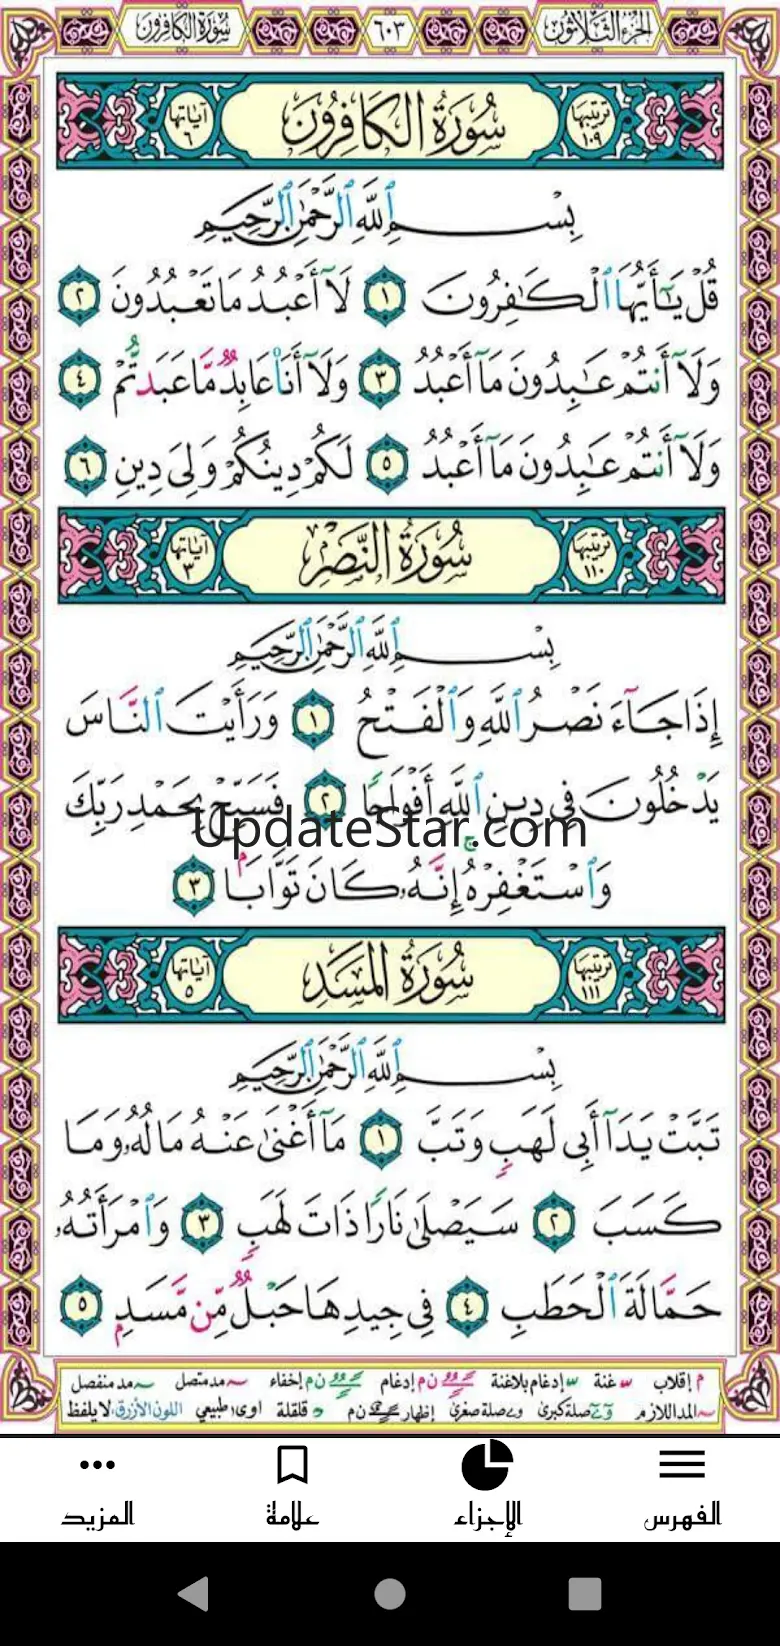 سُورَةُ الكَافِرُونَ ٦٠٣ الجُزْءُ الثَّلَاثُونَ
ترتيبها ١٠٩ سُورَةُ الكَافِرُونَ آياتها ٦
بِسْمِ ٱللَّهِ ٱلرَّحْمَٰنِ ٱلرَّحِيمِ
قُلْ يَٰٓأَيُّهَا ٱلْكَٰفِرُونَ ١ لَآ أَعْبُدُ مَا تَعْبُدُونَ ٢
وَلَآ أَنتُمْ عَٰبِدُونَ مَآ أَعْبُدُ ٣ وَلَآ أَنَا۠ عَابِدٌ مَّا عَبَدتُّمْ ٤
وَلَآ أَنتُمْ عَٰبِدُونَ مَآ أَعْبُدُ ٥ لَكُمْ دِينُكُمْ وَلِىَ دِينِ ٦
ترتيبها ١١٠ سُورَةُ النَّصْرِ آياتها ٣
بِسْمِ ٱللَّهِ ٱلرَّحْمَٰنِ ٱلرَّحِيمِ
إِذَا جَآءَ نَصْرُ ٱللَّهِ وَٱلْفَتْحُ ١ وَرَأَيْتَ ٱلنَّاسَ
يَدْخُلُونَ فِى دِينِ ٱللَّهِ أَفْوَاجًا ٢ فَسَبِّحْ بِحَمْدِ رَبِّكَ
UpdateStar.com
وَٱسْتَغْفِرْهُ ۚ إِنَّهُۥ كَانَ تَوَّابًۢا ٣
ترتيبها ١١١ سُورَةُ المَسَدِ آياتها ٥
بِسْمِ ٱللَّهِ ٱلرَّحْمَٰنِ ٱلرَّحِيمِ
تَبَّتْ يَدَآ أَبِى لَهَبٍ وَتَبَّ ١ مَآ أَغْنَىٰ عَنْهُ مَالُهُۥ وَمَا
كَسَبَ ٢ سَيَصْلَىٰ نَارًا ذَاتَ لَهَبٍ ٣ وَٱمْرَأَتُهُۥ
حَمَّالَةَ ٱلْحَطَبِ ٤ فِى جِيدِهَا حَبْلٌ مِّن مَّسَدٍۭ ٥
م إقلاب غنة إدغام بلاغنة ن م إدغام ن م إخفاء مد متصل مد منفصل
المد اللازم صلة كبرى صلة صغرى إظهار ن م قلقلة او ى طبيعي اللون الأزرق: لا يلفظ
الفهرس الإجزاء علامة المزيد